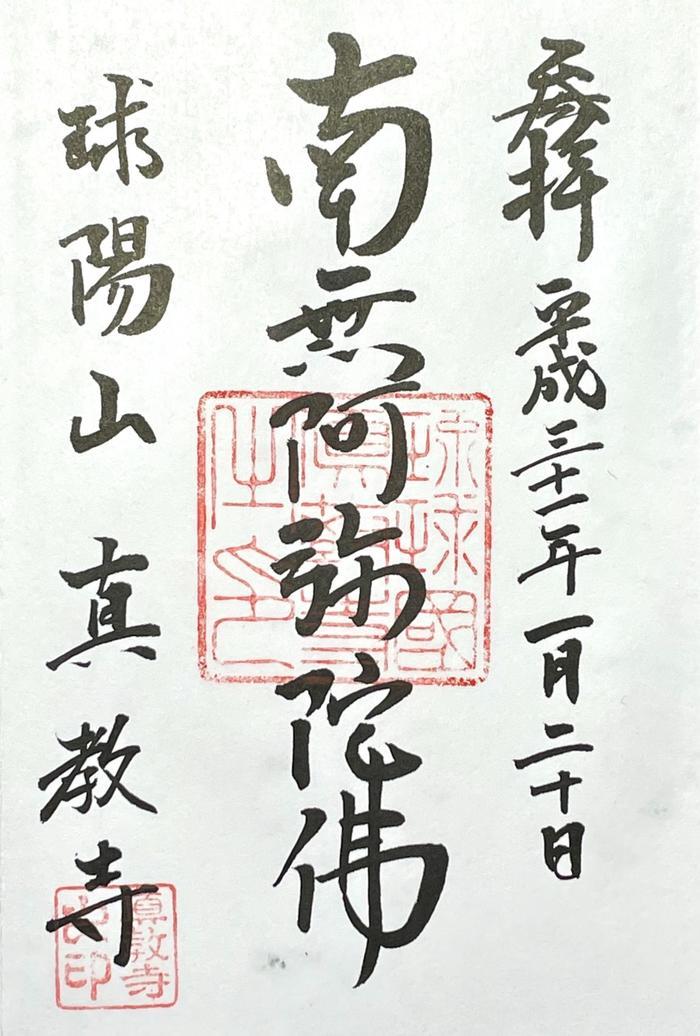 奉拝 平成三十一年一月二十日
南無阿弥陀佛
球陽山 真教寺
琉球國
眞教寺
之印
真教寺
之印